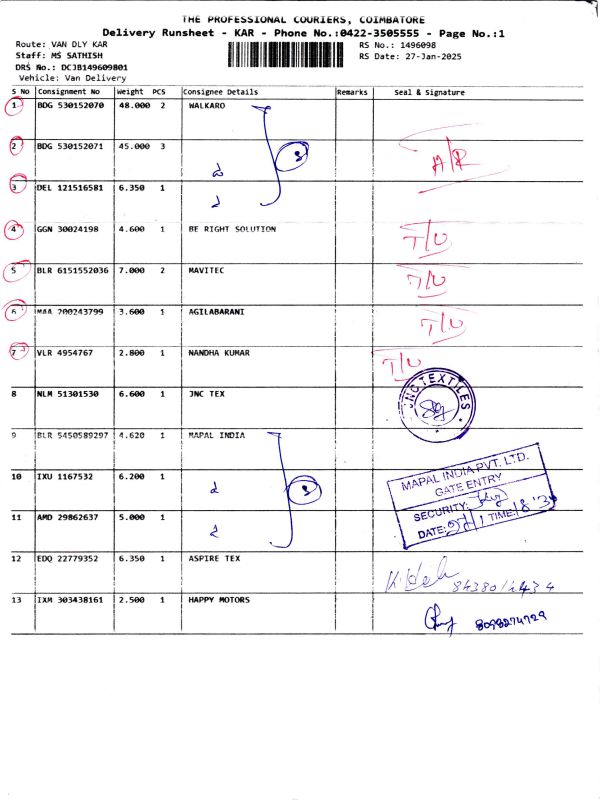 THE PROFESSIONAL COURIERS, COIMBATORE
Delivery Runsheet - KAR - Phone No.:0422-3505555 - Page No.:1
Route: VAN DLY KAR
Staff: MS SATHISH
DRS No.: DCJB149609801
Vehicle: Van Delivery
RS No.: 1496098
RS Date: 27-Jan-2025
S No Consignment No Weight PCS Consignee Details Remarks Seal & Signature
1 BDG 530152070 48.000 2 WALKARO
2 BDG 530152071 45.000 3 A/R
3 DEL 121516581 6.350 1
4 GGN 30024198 4.600 1 BE RIGHT SOLUTION T/U
5 BLR 6151552036 7.000 2 MAVITEC T/U
6 MAA 200243799 3.600 1 AGILABARANI T/U
7 VLR 4954767 2.800 1 NANDHA KUMAR T/U
8 NLM 51301530 6.600 1 JNC TEX
JNC TEXTILES
9 BLR 5450589297 4.620 1 MAPAL INDIA
10 IXU 1167532 6.200 1
MAPAL INDIA PVT. LTD.
GATE ENTRY
SECURITY:
DATE: TIME:
11 AMD 29862637 5.000 1
12 EDQ 22779352 6.350 1 ASPIRE TEX
13 IXM 303438161 2.500 1 HAPPY MOTORS
8098274729